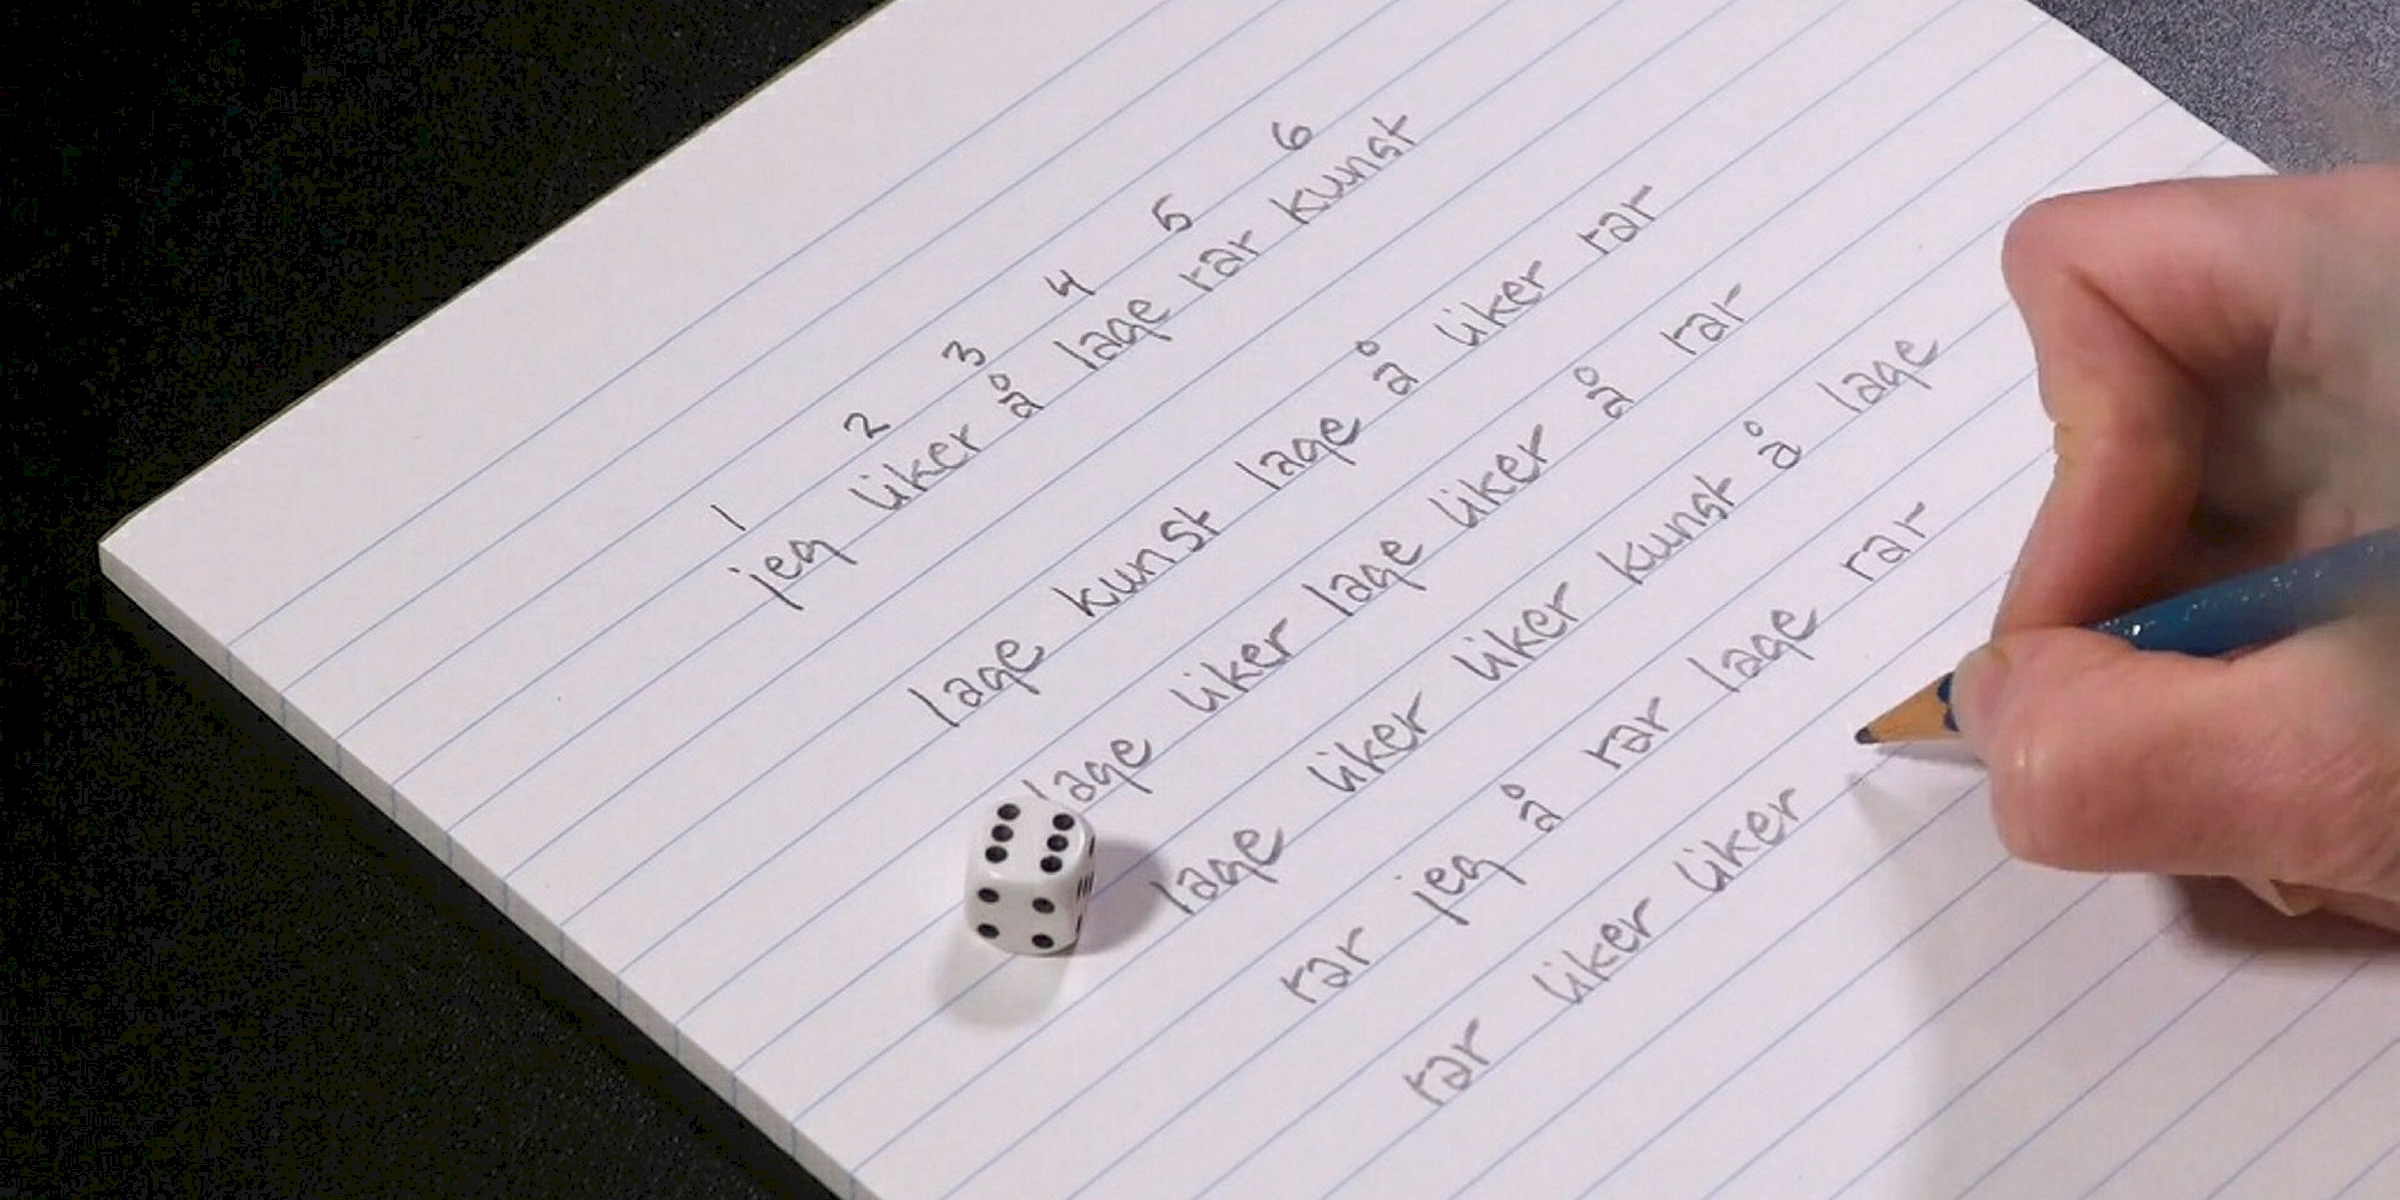 1 2 3 4 5 6
jeg liker å lage rar kunst
lage kunst lage å liker rar
lage liker lage liker å rar
lage liker liker kunst å lage
rar jeg å rar lage rar
rar liker liker